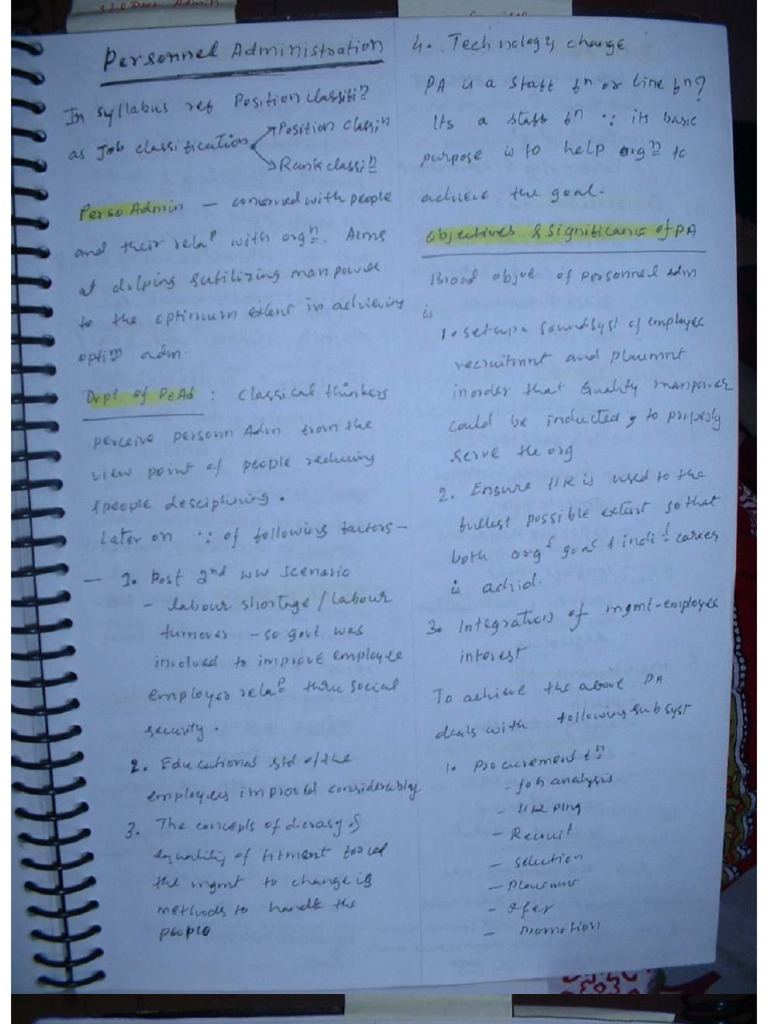 Personnel Administration
In syllabus ref Position classifin
as Job classification
Position classin
Rank classin
Perso Admin – concerned with people
and their relan with orgn. Aims
at dvlping & utilizing manpower
to the optimum extent in achieving
optim adm.
Dvpt of PeAd : Classical thinkers
perceive personn Adm from the
view point of people reducing
& people desciplining.
Later on ∵ of following factors –
– 1. Post 2nd WW scenario
– labour shortage / labour
turnover – so govt was
involved to improve employee
employer relan thru social
security.
2. Educational std of the
employees improved considerably
3. The concepts of
equality of forced
the mgmt to change its
methods to handle the
people
4. Technology change
PA is a staff fn or line fn?
Its a staff fn ∵ its basic
purpose is to help orgn to
achieve the goal.
Objectives & Significance of PA
Broad objve of personnel adm
is
1. setup a sound syst of employee
recruitmnt and placemnt
inorder that Quality manpower
could be inducted to properly
serve the org
2. Ensure HR is used to the
fullest possible extent so that
both orgl goal & indil career
is achid.
3. Integration of mgmt-employee
interest
To achieve the above PA
deals with following subsyst
1. Procurement fn
– Job analysis
– HR plng
– Recruit
– Selection
– Placemnt
– Tfer
– Promotion